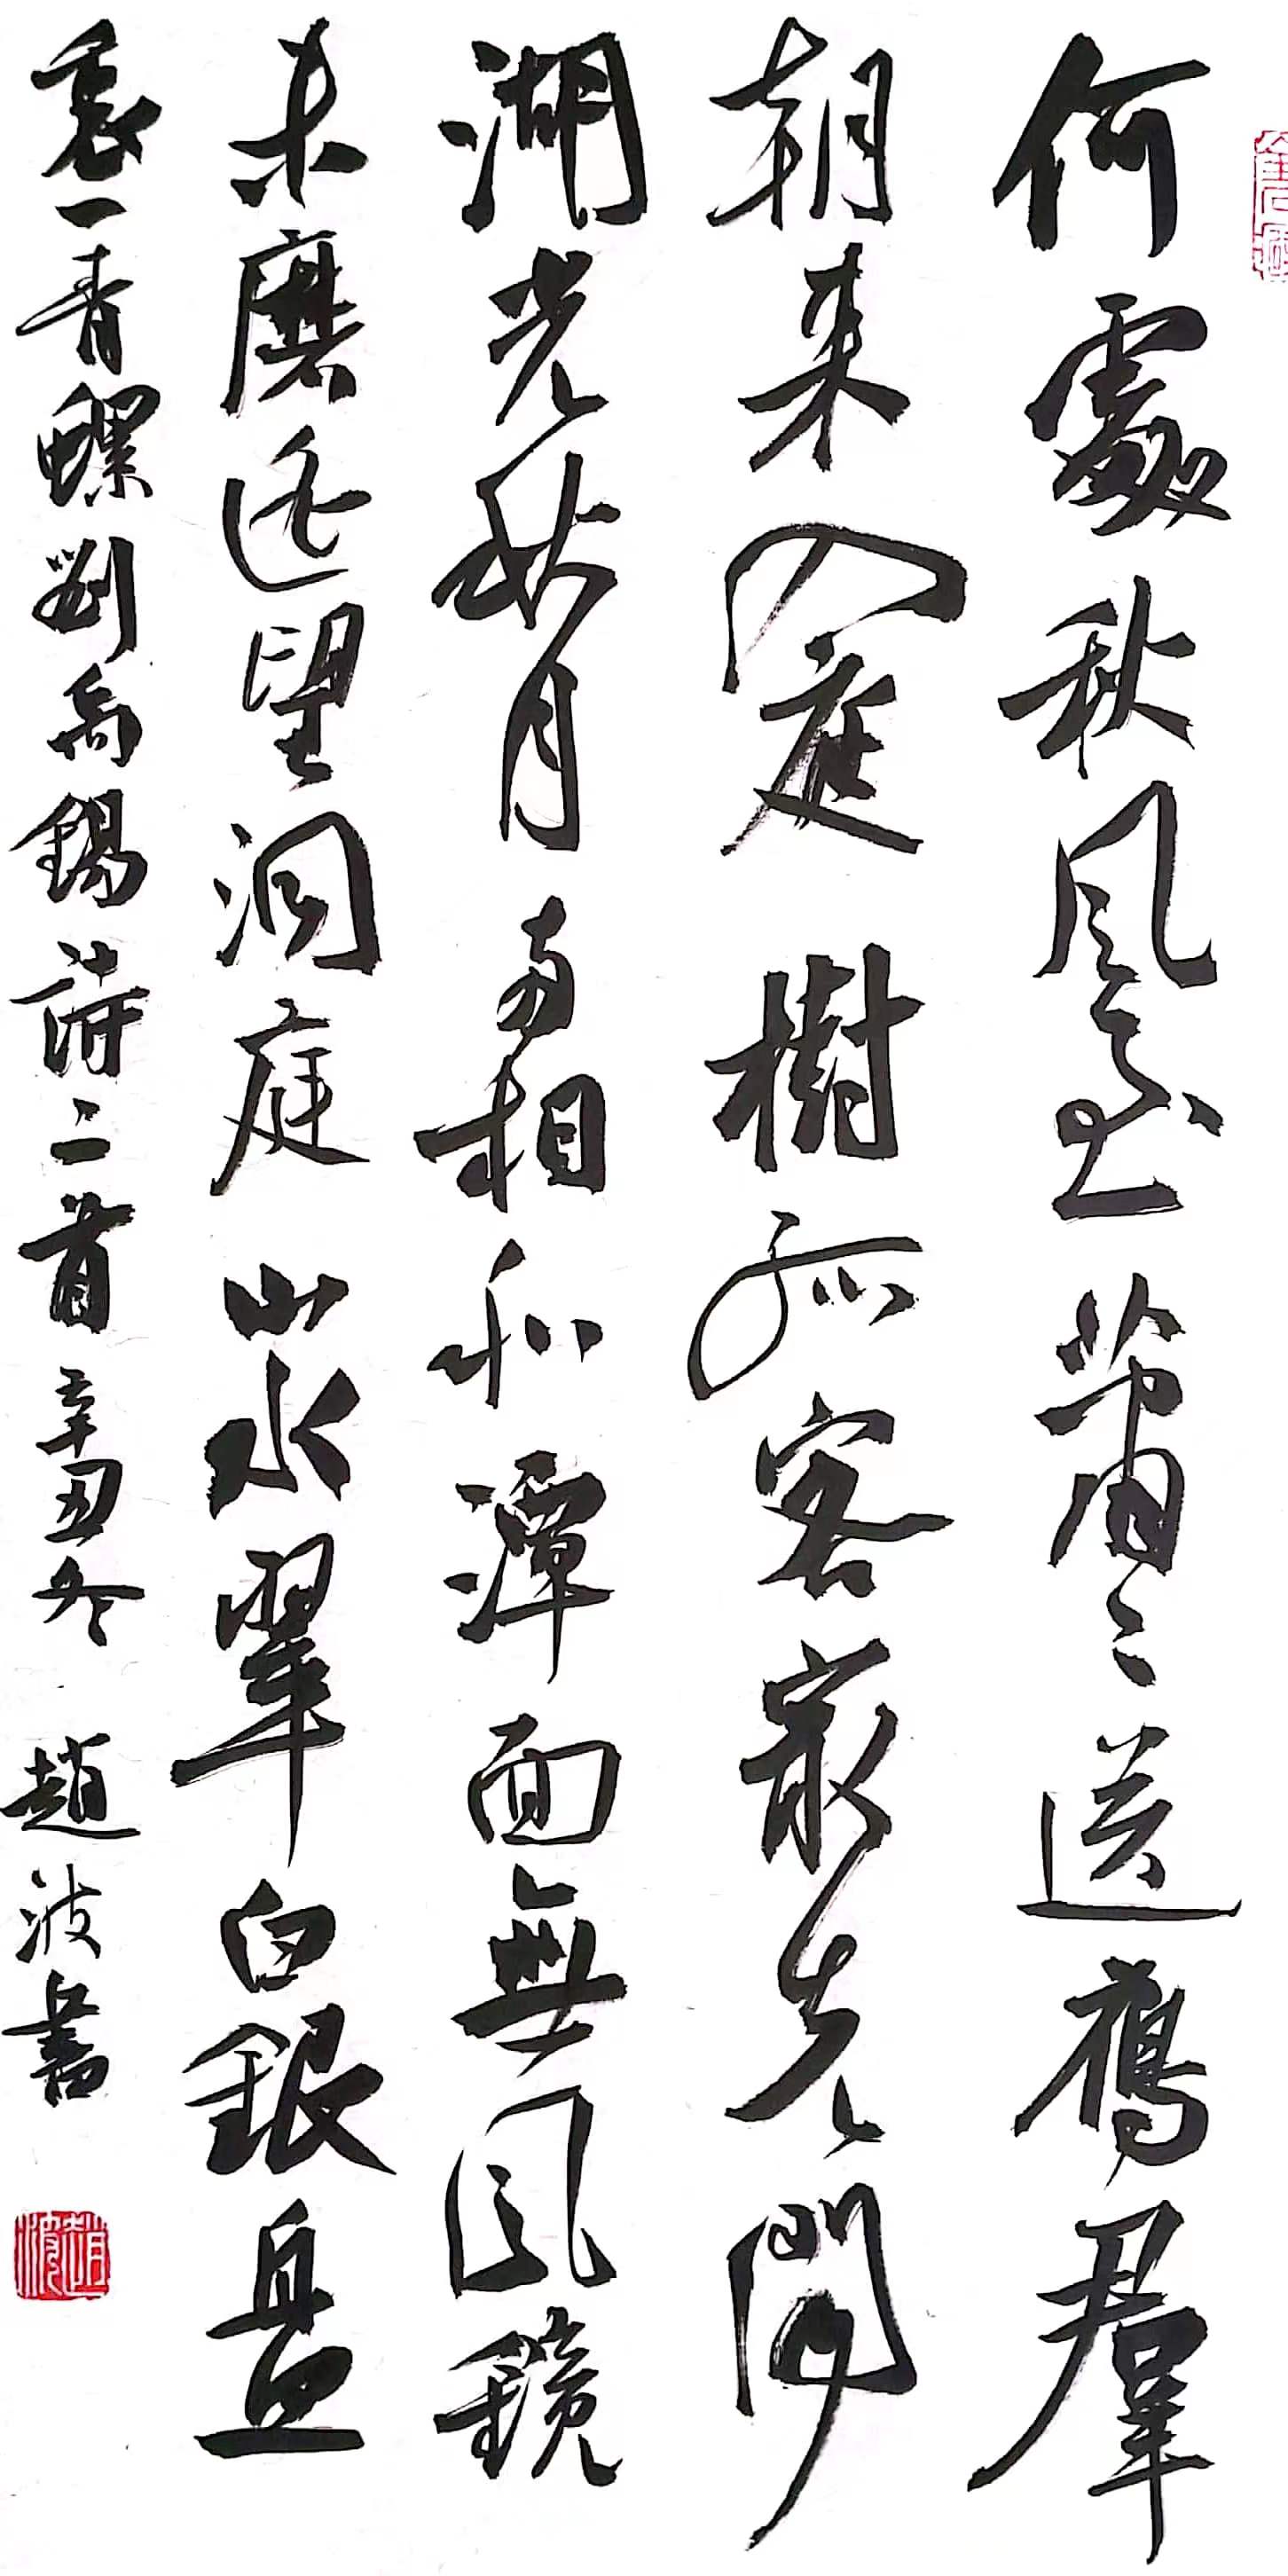 何處秋風至蕭〻送鴈羣
朝来入庭樹孤客最先聞
湖光秋月兩相和潭面無風鏡
未磨遙望洞庭山水翠白銀盤
裏一青螺劉禹錫詩二首辛丑冬趙波書
趙波